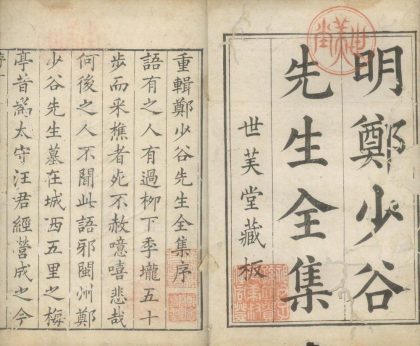 明鄭少谷
先生全集
世美堂藏板
重輯鄭少谷先生全集序
語有之人有過柳下季壠五十
步而采樵者死不赦噫嘻悲哉
何後之人不聞此語邪閩州鄭
少谷先生墓在城西五里之梅
亭昔為太守汪君經營成之今